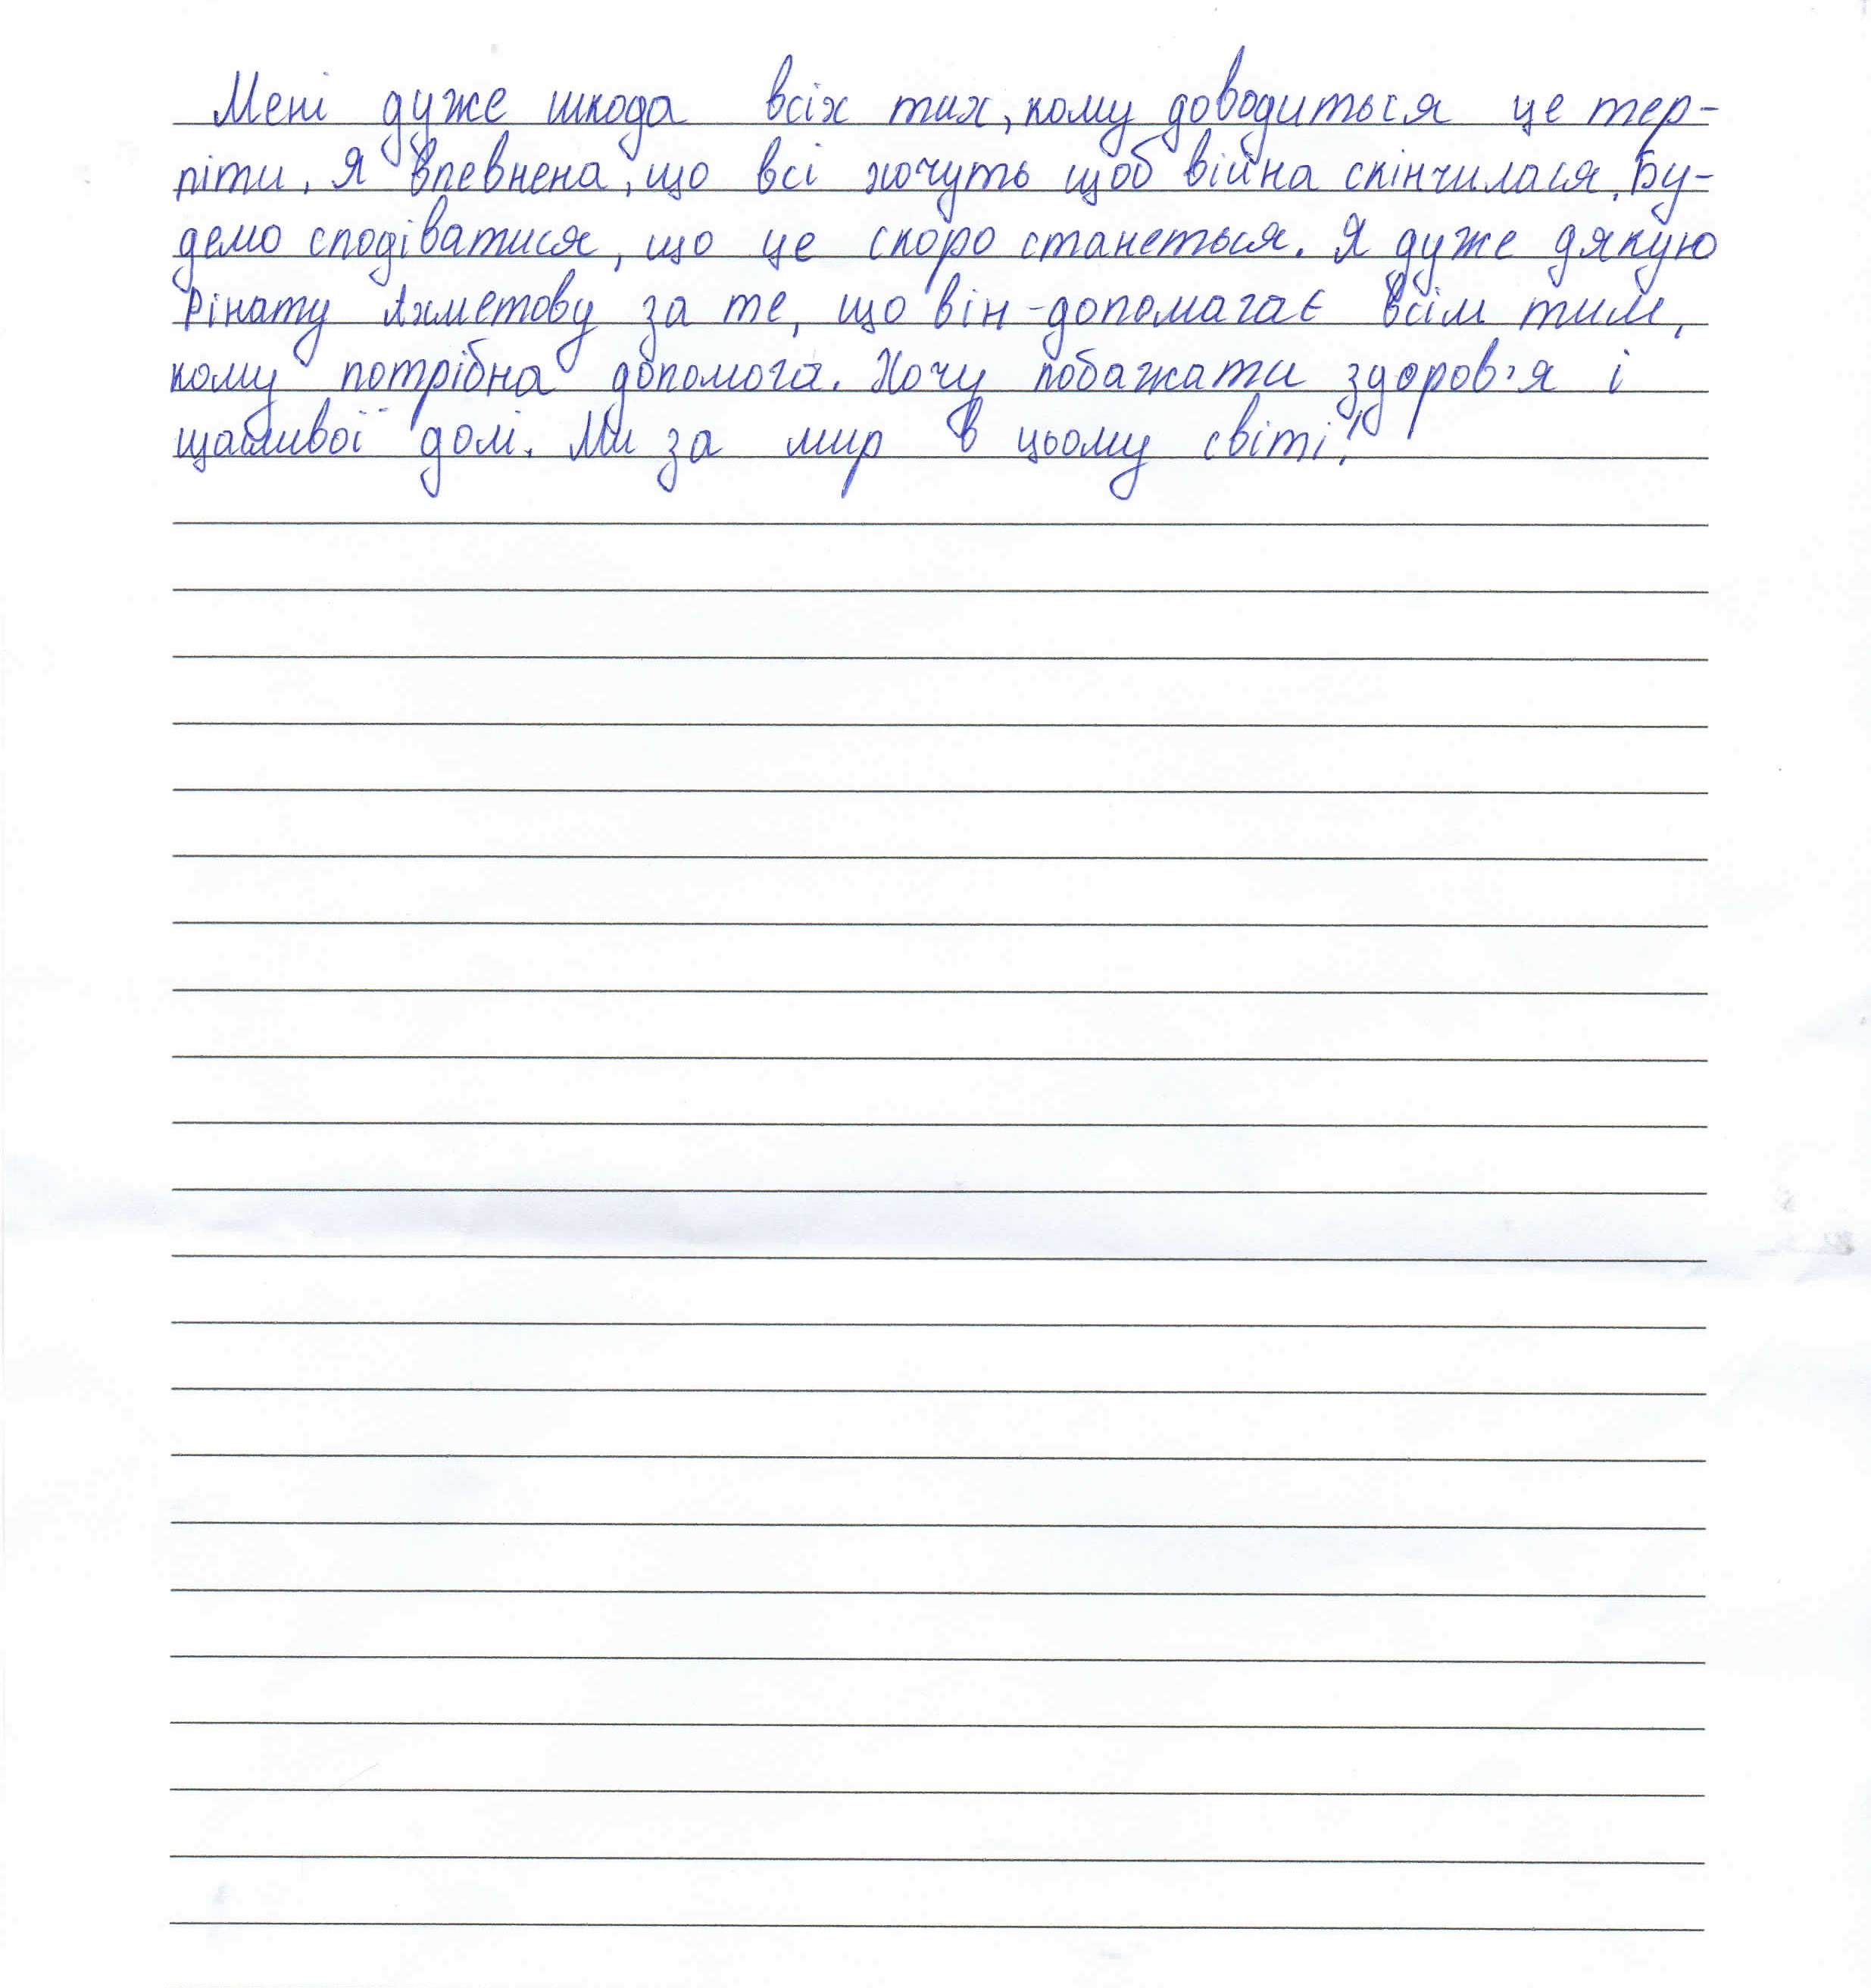 Мені дуже шкода всіх тих, кому доводиться це тер-
піти. Я впевнена, що всі хочуть щоб війна скінчилася. Бу-
демо сподіватися, що це скоро станеться. Я дуже дякую
Рінату Ахметову за те, що він -допомагає всім тим,
кому потрібна допомога. Хочу побажати здоров'я і
щасливої долі. Ми за мир в цьому світі!